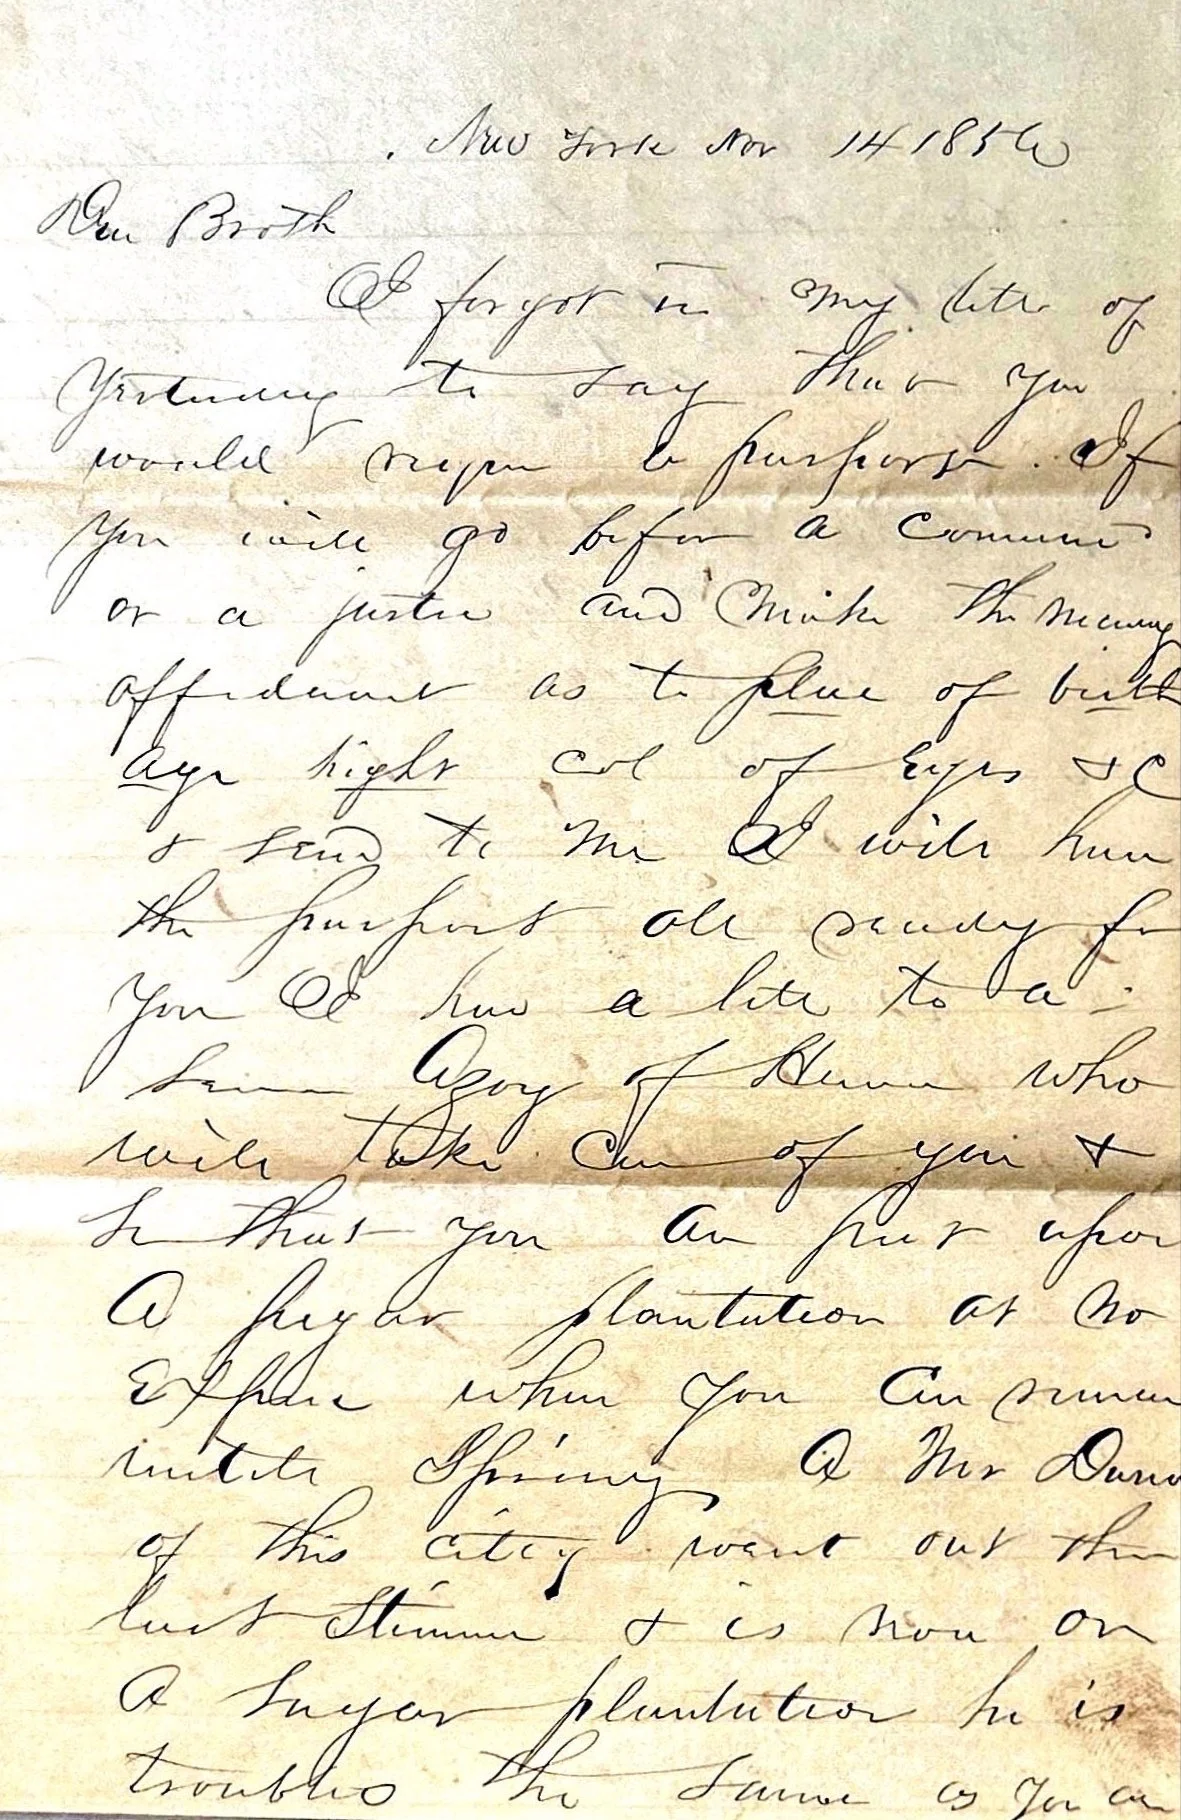 New York Nov 14 1856
Dear Broth
I forgot in my letter of
Yesterday to say that you
would require a passport. If
you will go before a
or a justice and make the necessary
affidavit as to place of birth
age hight col of Eyes & c
& send to me I will have
the passport all ready for
you I have a letter to a
Azoy of Havana who
will take care of you &
see that you are put upon
A sugar plantation at no
Expense where you can remain
until Spring A Mr
of this city went out the
last Steamer & is now on
A sugar plantation he is
troubled the same as you are